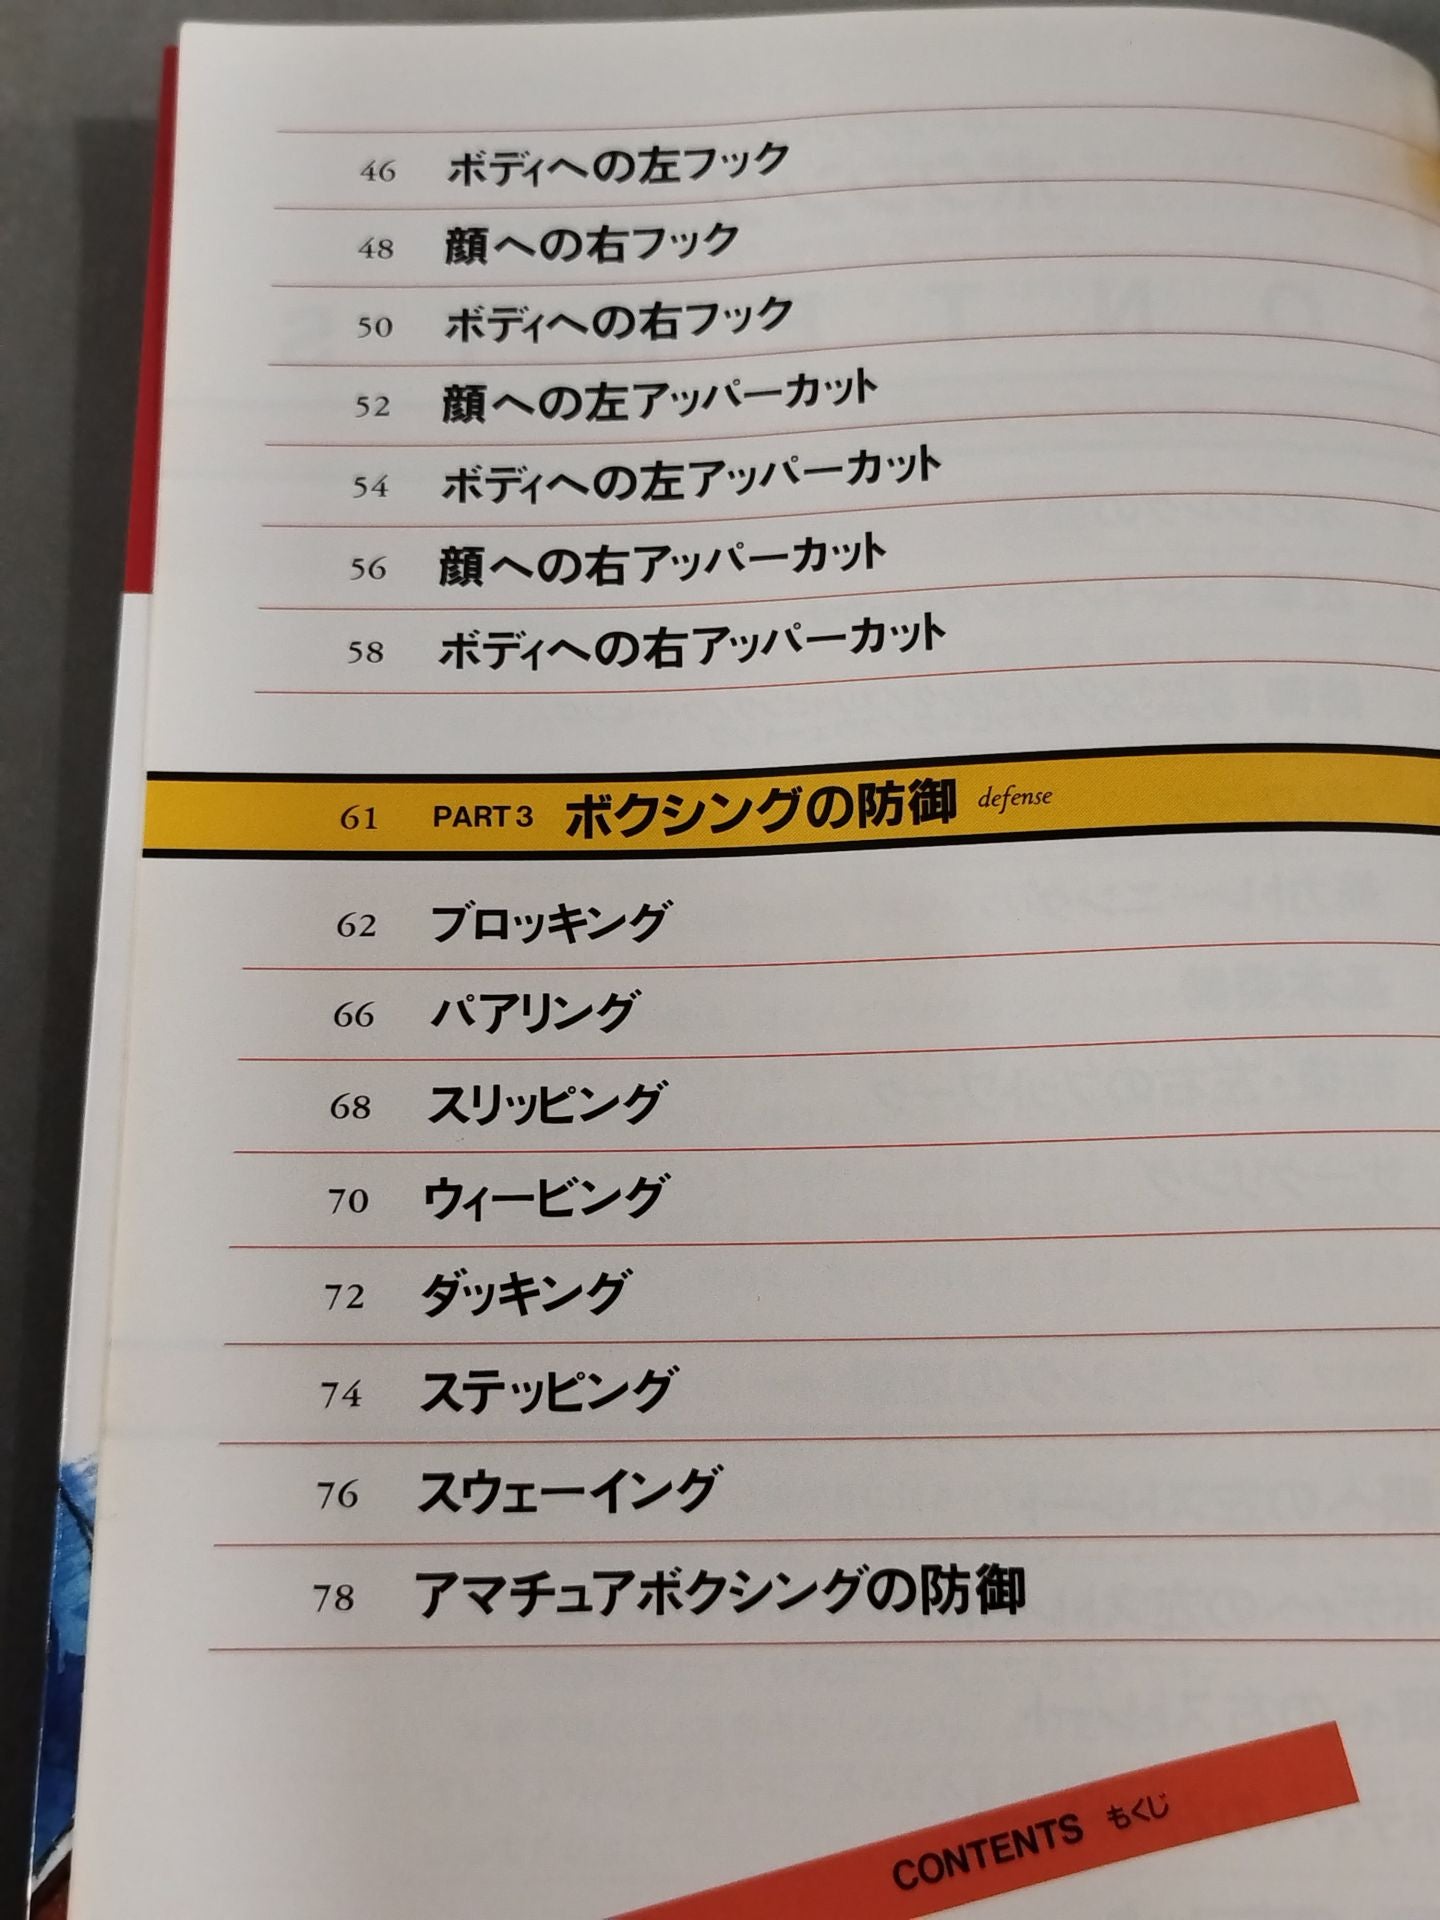 46 ボディへの左フック
48 顔への右フック
50 ボディへの右フック
52 顔への左アッパーカット
54 ボディへの左アッパーカット
56 顔への右アッパーカット
58 ボディへの右アッパーカット
61 PART3 ボクシングの防御 defense
62 ブロッキング
66 パアリング
68 スリッピング
70 ウィービング
72 ダッキング
74 ステッピング
76 スウェーイング
78 アマチュアボクシングの防御
CONTENTS もくじ